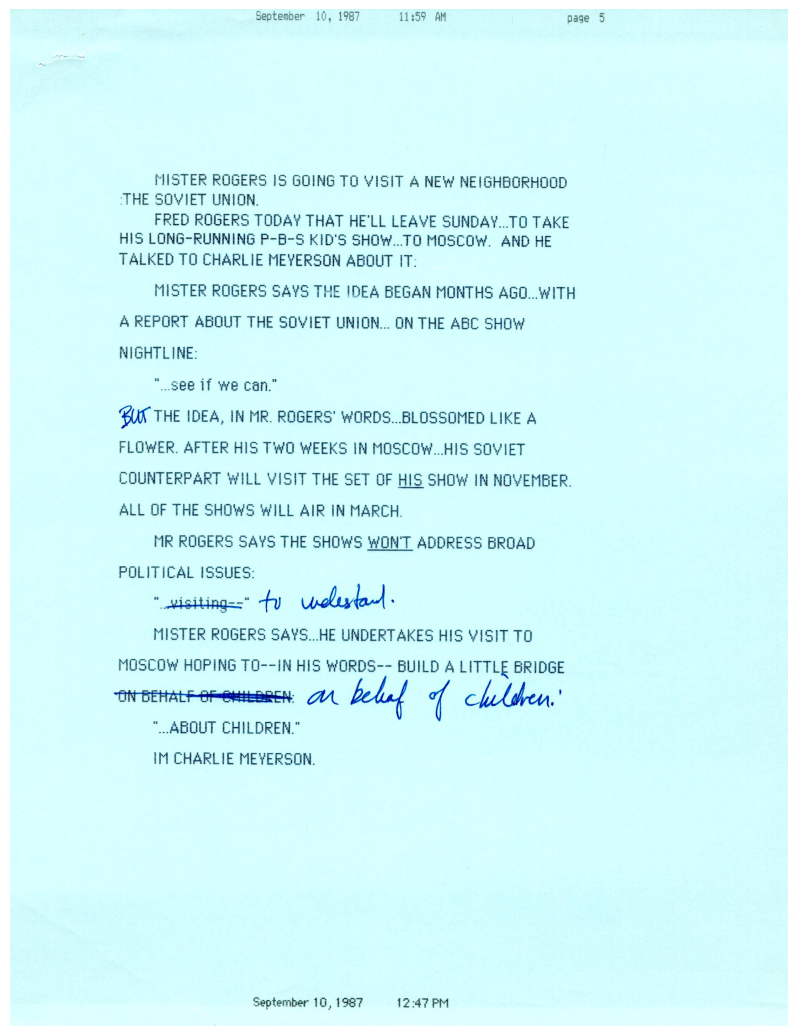 September 10, 1987 11:59 AM page 5
MISTER ROGERS IS GOING TO VISIT A NEW NEIGHBORHOOD
:THE SOVIET UNION.
FRED ROGERS TODAY THAT HE'LL LEAVE SUNDAY...TO TAKE
HIS LONG-RUNNING P-B-S KID'S SHOW...TO MOSCOW. AND HE
TALKED TO CHARLIE MEYERSON ABOUT IT:
MISTER ROGERS SAYS THE IDEA BEGAN MONTHS AGO...WITH
A REPORT ABOUT THE SOVIET UNION... ON THE ABC SHOW
NIGHTLINE:
"...see if we can."
BUT THE IDEA, IN MR. ROGERS' WORDS...BLOSSOMED LIKE A
FLOWER. AFTER HIS TWO WEEKS IN MOSCOW...HIS SOVIET
COUNTERPART WILL VISIT THE SET OF HIS SHOW IN NOVEMBER.
ALL OF THE SHOWS WILL AIR IN MARCH.
MR ROGERS SAYS THE SHOWS WON'T ADDRESS BROAD
POLITICAL ISSUES:
"...visiting--" to understand.
MISTER ROGERS SAYS...HE UNDERTAKES HIS VISIT TO
MOSCOW HOPING TO--IN HIS WORDS-- BUILD A LITTLE BRIDGE
ON BEHALF OF CHILDREN: on behalf of children:
"...ABOUT CHILDREN."
IM CHARLIE MEYERSON.
September 10, 1987 12:47 PM